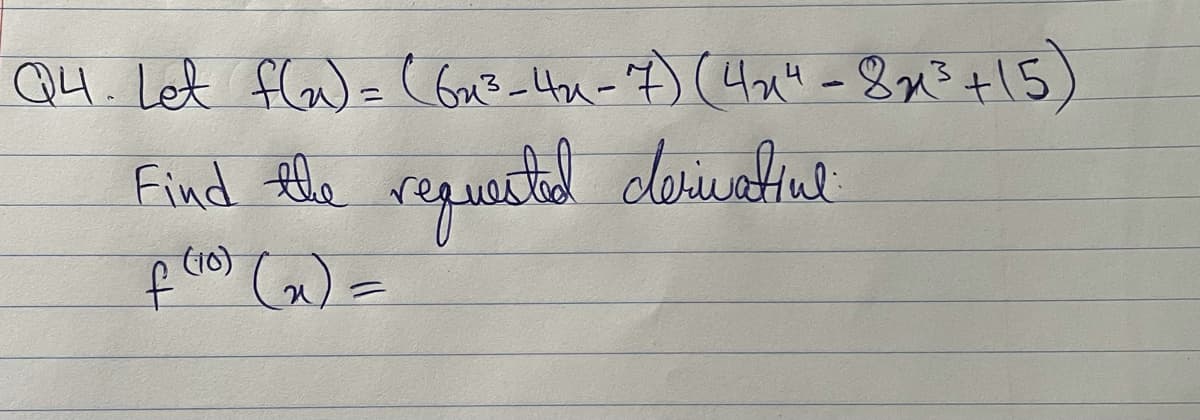 Q4. Let f(x) = (6x³-4x-7)(4x⁴-8x³+15)
Find the requested derivative:
f⁽¹⁰⁾(x) =